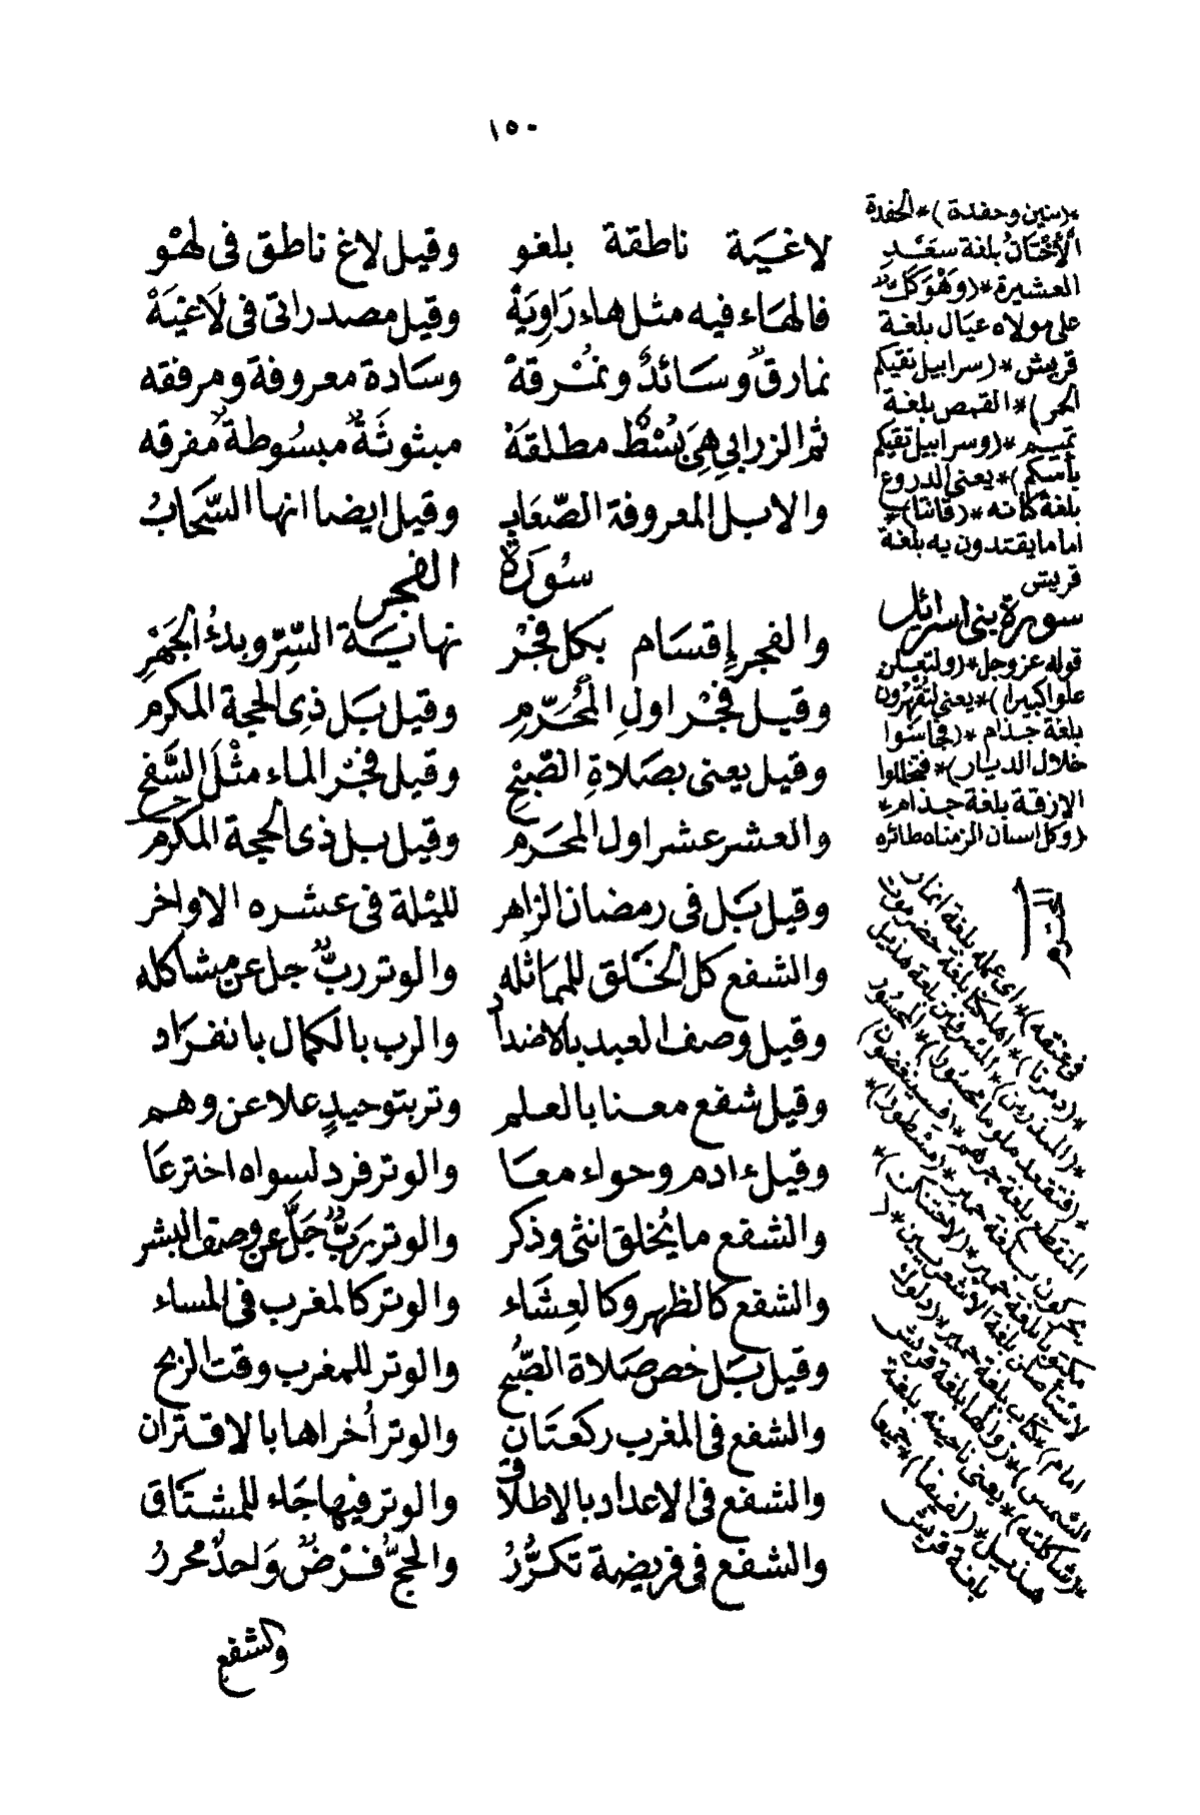 ١٥٠
لاغيَة ناطقة بلغو وقيل لاغ ناطق فى لهْو
فالهَاء فيه مثل هاء رَاوِيَةْ وقيل مصدر اتى فى لَاغيَةْ
نمارقٌ وسَائدٌ ونمُْرقةْ وسَادة معروفة ومرفقه
ثم الزرابي هِىَ بُسْطٌ مطلقَةْ مبثوثَةٌ مبسُوطةٌ مفرقه
والابل المعروفة الصّعَاب وقيل ايضا انها السَّحَابُ
سُورَةُ الفجر
والفجر إقسَام بكل فجْر نهايَة السِّرّ وبدءُ الجَهْرِ
وقيل فجْر اولِ المُحُرّمِ وقيل بَل ذِى الحجة المكرم
وقيل يعنى بصَلاةِ الصّبْحِ وقيل فجْر الماء مثْلَ السَّفح
والعشر عشر اول المحَرم وقيل بل ذى الحجة المكرم
وقيل بَل فى رمضان الزاهر لليْلة فى عشره الاواخر
والشفع كل الخَلق للمماثله والوتر ربٌّ جل عن مشاكله
وقيل وصف العبد بالاضداد والرب بالكمال بانفرَاد
وقيل شفع معنا بالعلم وتر بتوحيدٍ علا عن وهم
وقيل ءادم وحواء معَا والوتر فرد لسواه اخترعَا
والشفع ما يُخلق انثى وذكر والوتر رَبٌّ جَلَّ عن وصف البشر
والشفع كالظهر وكالعِشَاء والوتر كالمغرب فى المساء
وقيل بَل خص صَلاة الصُّبح والوتر للمغرب وقت الربح
والشفع فى المغرب ركعَتَان والوتر أُخراها بالاقتران
والشفع فى الاعداد بالاطلاق والوتر فيها جَاء للمشتَاق
والشفع فى فريضة تكرُّرُ والحجُّ فرْضٌ وَاحدٌ محررُ
وكشفع
*(بنين وحفدة)* الحفدة
الأخْتَانُ بلغة سعَد
العشيرة *(وَهْوَ كَلٌّ
على مولاه عيَال بلغة
قريش *(سرابيل تقيكم
الحر)* القمص بلغة
تميم *(وسرابيل تقيكم
بأسكم)* يعنى الدروع
بلغة كنانه *(قانتا)*
اماما يقتدون به بلغة
قريش
سورة بنى اسرائيل
قوله عز وجل *(ولتعلن
علوا كبيرا)* يعنى لتقْهَرُون
بلغة جذام *(فجاسُوا
خلال الديار)* فتخللوا
الازقة بلغة جذام *
(وكل انسان الزمناه طائره
فى عنقه)* اى عمله بلغة انمار
*(دمرنا)* اهلكنا بلغة حضرموت
*(المبذرين)* المسرفين بلغة هذيل
*(فتقعد ملوما محسُورا)* المحسُور
المنقطع بلغة جرهم *(فسينغضون)
يحركون بلغة حمير *(مسطورا)*
مكتوبا بلغة حمير *(لاحتنكن)*
لاستأصلن بلغة الاشعريين *(
امام)* كتاب بلغة حمير *(دلوك
الشمس)* زوالها بلغة قريش
*(شاكلته)* يعنى ناحيته بلغة
هذيل *(لفيفا)* جميعا
بلغة قريش